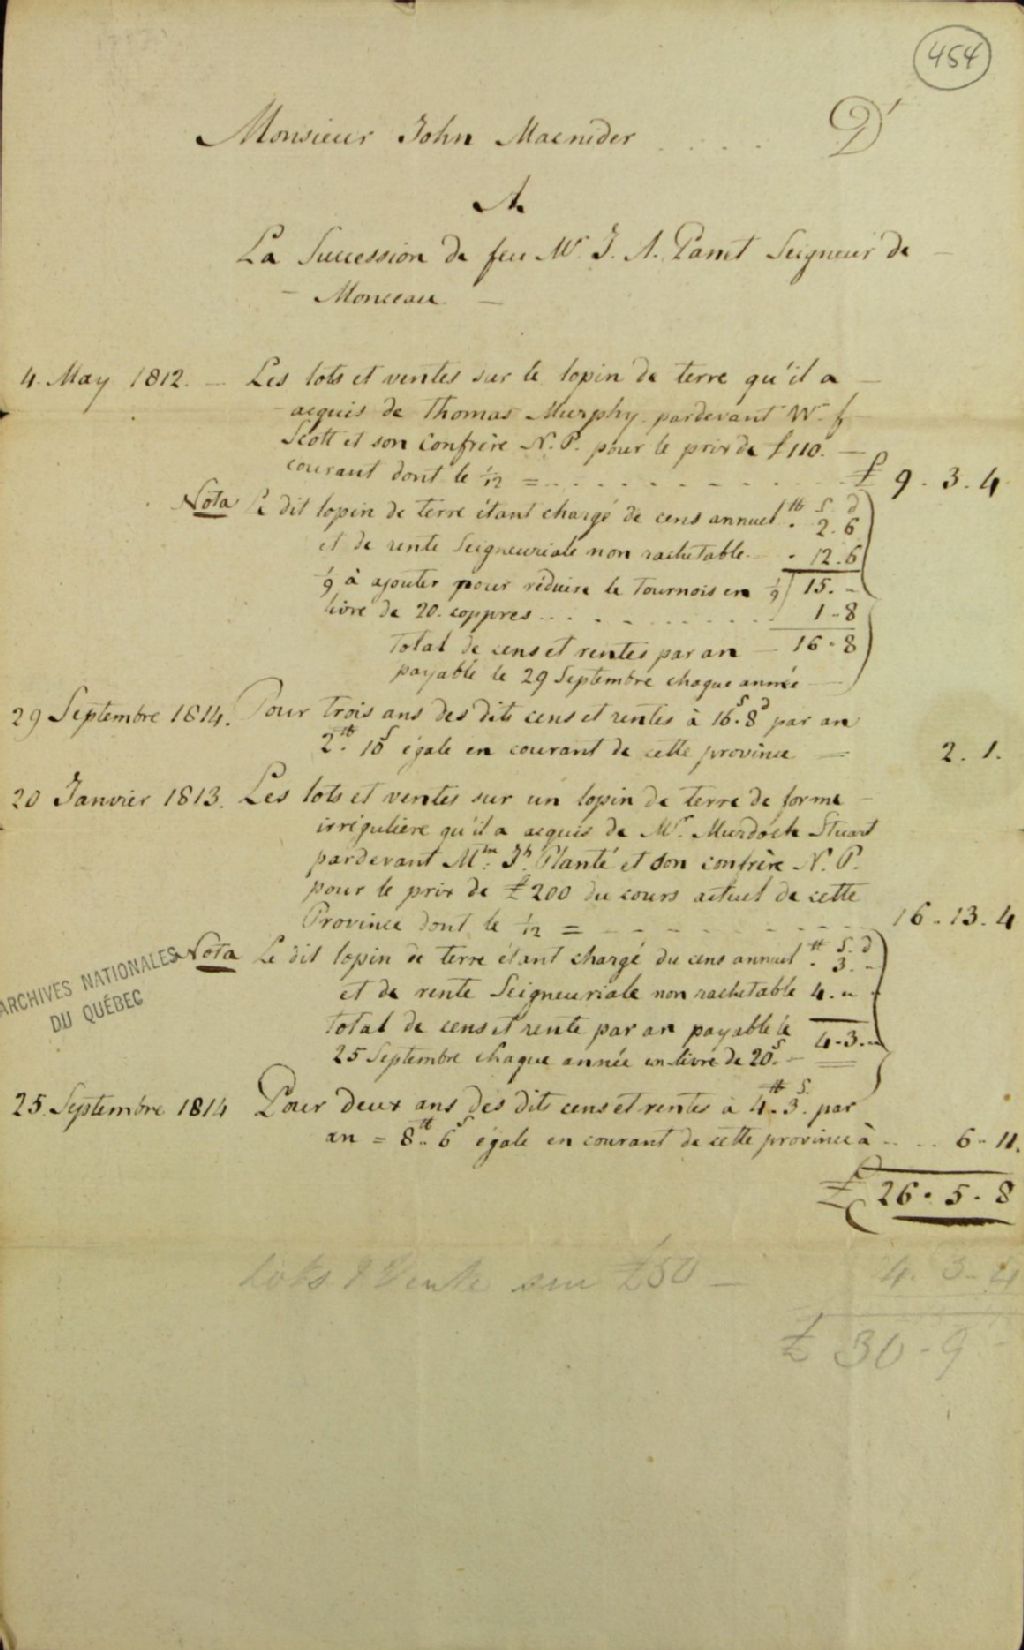 454
Monsieur John Macnider . . . . Dr
A
La Succession de feu Mr. J. A. Panet Seigneur de
Monceau
4. May 1812. Les lots et ventes sur le lopin de terre qu'il a
acquis de Thomas Murphy pardevant W. f.
Scott et son Confrère N. P. pour le prix de £110.
courant dont le 1/12 = £ 9 . 3 . 4
Nota Le dit lopin de terre étant chargé de cens annuel tt s d . 2 . 6
et de rente Seigneuriale non rachetable . 12 . 6
1/9 à ajouter pour réduire le tournois en 1/9) 15 . -
livre de 20. coppres 1 . 8
Total de cens et rentes par an 16 . 8
payable le 29 Septembre chaque année
29 Septembre 1814. Pour trois ans des dits cens et rentes à 16s. 8d par an
2tt. 10s égale en courant de cette province 2 . 1 .
20 Janvier 1813. Les lots et ventes sur un lopin de terre de forme
irrégulière qu'il a acquis de Mr. Murdock Stuart
pardevant Mtre. Jh. Planté et son confrère N. P.
pour le prix de £200 du cours actuel de cette
Province dont le 1/12 = 16 . 13 . 4
Nota Le dit lopin de terre étant chargé du cens annuel tt s. d . 3 . -
et de rente Seigneuriale non rachetable 4 . "
Total de cens et rente par an payable le 4 . 3 . "
25 Septembre chaque année en livre de 20s.
25. Septembre 1814 Pour deux ans des dits cens et rentes à 4tt. 3s. par
an = 8tt. 6s égale en courant de cette province à 6 . 11 .
£ 26 . 5 . 8
lots & Vente sur £50 — 4 . 3 . 4
£ 30 . 9 . -
ARCHIVES NATIONALES
DU QUÉBEC